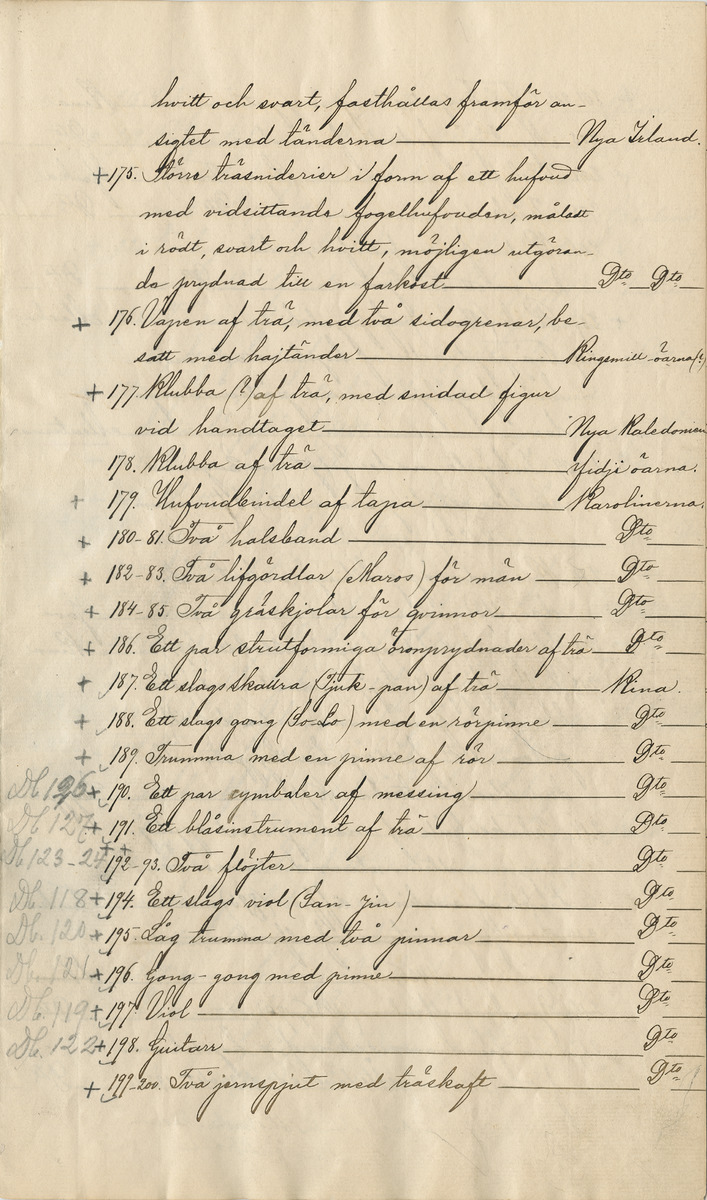 hvitt och svart, fasthållas framför an-
sigtet med tänderna Nya Irland.
+ 175. Större träsniderier i form af ett hufvud
med vidsittande fogelhufvuden, måladt
i rödt, svart och hvitt, möjligen utgöran-
de prydnad till en farkost Dto Dto
+ 176. Vapen af trä, med två sidogrenar, be-
satt med hajtänder Kingsmill-öarna(?)
+ 177. Klubba (?) af trä, med snidad figur
vid handtaget Nya Kaledonien
178. Klubba af trä Fidji öarna.
+ 179. Hufvudbindel af tapa Karolinerna.
+ 180-81. Två halsband Dto
+ 182-83. Två lifgördlar (Maros) för män Dto
+ 184-85. Två gräskjolar för qvinnor Dto
+ 186. Ett par strutformiga öronprydnader af trä Dto
+ 187. Ett slags skallra (Tjuk-pan) af trä Kina.
+ 188. Ett slags gong (Lo-Lo) med en rörpinne Dto
+ 189. Trumma med en pinne af rör Dto
Db 126 + 190. Ett par cymbaler af messing Dto
Db 127 + 191. Ett blåsinstrument af trä Dto
Db 123-24 + + 192-93. Två flöjter Dto
Db. 118 + 194. Ett slags viol (San-jin) Dto
Db. 120 + 195. Låg trumma med två pinnar Dto
Db. 121 + 196. Gong-gong med pinne Dto
Db. 119 + 197. Viol Dto
Db. 122 + 198. Guitarr Dto
+ 199-200. Två jernspjut med träskaft Dto